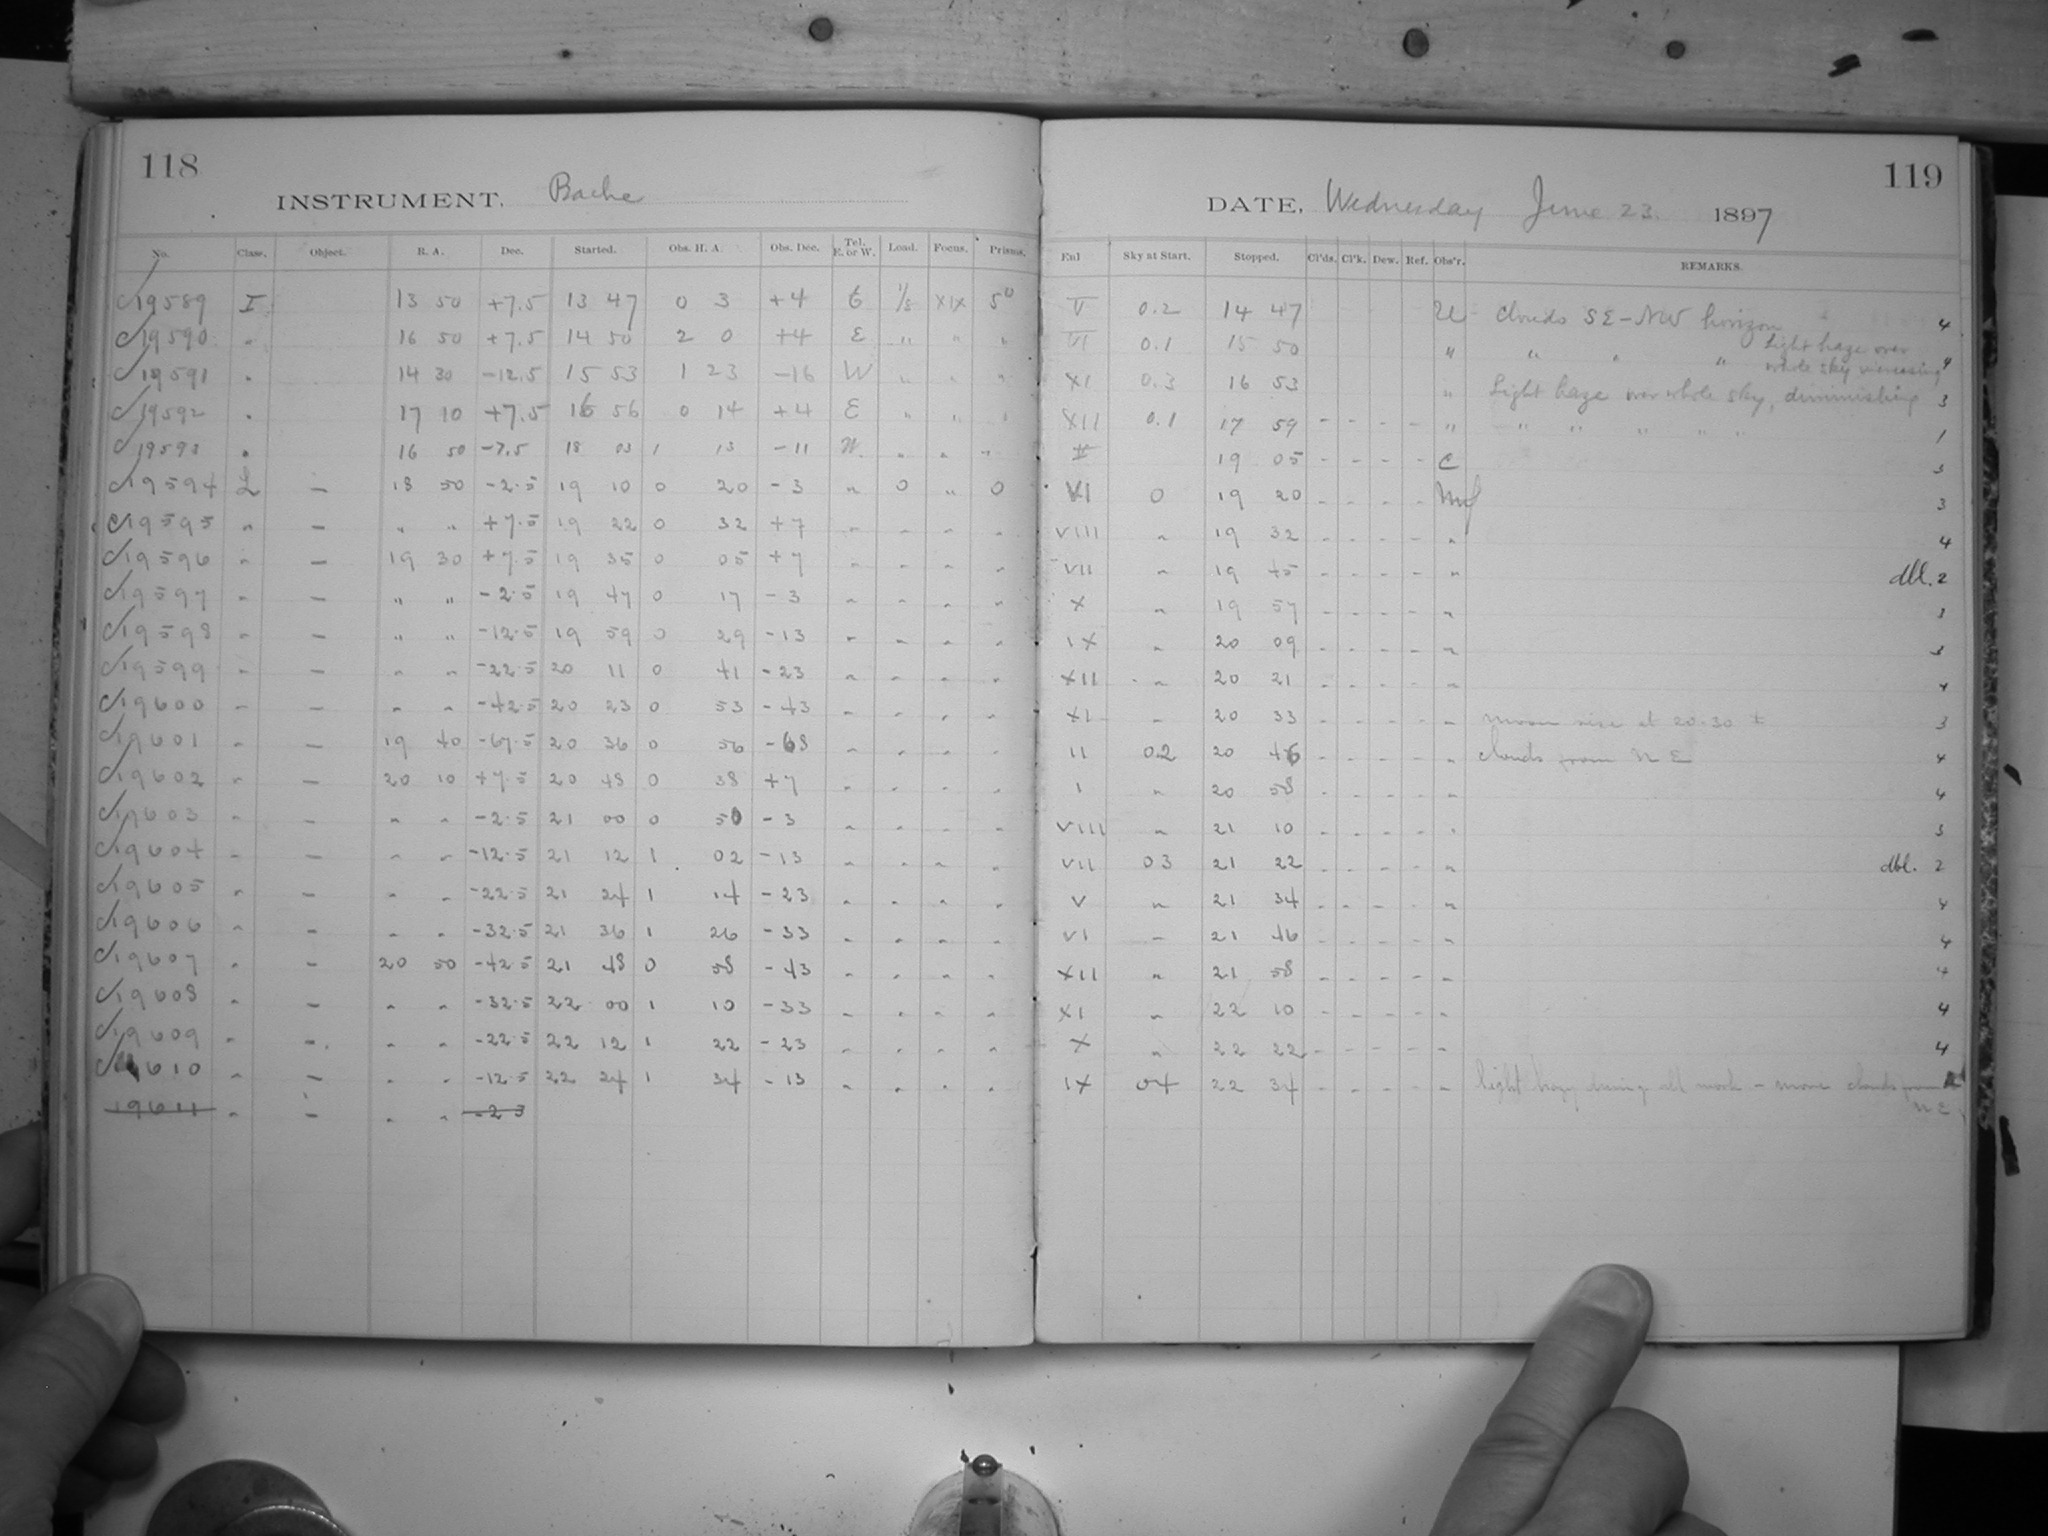 118
INSTRUMENT. Bache
No. Class. Object. R. A. Dec. Started. Obs. H. A. Obs. Dec. Tel. E. or W. Load. Focus. Prisms.
C19589 I 13 50 +7.5 13 47 0 3 +4 E 1/8 XIX 5°
C19590 " 16 50 +7.5 14 50 2 0 +4 E " " "
C19591 " 14 30 -12.5 15 53 1 23 -16 W " " "
C19592 " 17 10 +7.5 16 56 0 14 +4 E " " "
C19593 " 16 50 -7.5 18 03 1 13 -11 W. " " "
C19594 L — 18 50 -2.5 19 10 0 20 -3 " 0 " 0
C19595 " — " " +7.5 19 22 0 32 +7 " " " "
C19596 " — 19 30 +7.5 19 35 0 05 +7 " " " "
C19597 " — " " -2.5 19 47 0 17 -3 " " " "
C19598 " — " " -12.5 19 59 0 29 -13 " " " "
C19599 " — " " -22.5 20 11 0 41 -23 " " " "
C19600 " — " " -42.5 20 23 0 53 -43 " " " "
C19601 " — 19 40 -67.5 20 36 0 56 -68 " " " "
C19602 " — 20 10 +7.5 20 48 0 38 +7 " " " "
C19603 " — " " -2.5 21 00 0 50 -3 " " " "
C19604 " — " " -12.5 21 12 1 02 -13 " " " "
C19605 " — " " -22.5 21 24 1 14 -23 " " " "
C19606 " — " " -32.5 21 36 1 26 -33 " " " "
C19607 " — 20 50 -42.5 21 48 0 58 -43 " " " "
C19608 " — " " -32.5 22 00 1 10 -33 " " " "
C19609 " — " " -22.5 22 12 1 22 -23 " " " "
C19610 " — " " -12.5 22 24 1 34 -13 " " " "
19611 " — " " -23
119
DATE, Wednesday June 23. 1897
Enl Sky at Start. Stopped. Cl'ds. Cl'k. Dew. Ref. Obs'r. REMARKS.
V 0.2 14 47 clouds SE-NW horizon 4
VI 0.1 15 50 " " " " Light haze over whole sky increasing 4
XI 0.3 16 53 " Light haze over whole sky, diminishing 3
XII 0.1 17 59 - - - - " " " " " " 1
II 19 05 - - - - C 3
VI 0 19 20 - - - - 3
VIII " 19 32 - - - - " 4
VII " 19 45 - - - - " dbl. 2
X " 19 57 - - - - " 3
IX " 20 09 - - - - " 3
XII " 20 21 - - - - " 4
XI " 20 33 - - - - " moon rise at 20.30 ± 3
II 02 20 46 - - - - " clouds from N E 4
I " 20 58 - - - - " 4
VIII " 21 10 - - - - " 3
VII 03 21 22 - - - - " dbl. 2
V " 21 34 - - - - " 4
VI " 21 46 - - - - " 4
XII " 21 58 - - - - " 4
XI " 22 10 - - - - " 4
X " 22 22 - - - - " 4
IX 04 22 34 - - - - " light hazy during all work - more clouds from N E